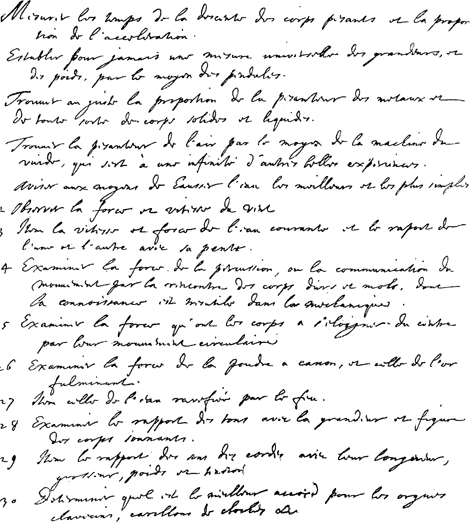 Mesurer les temps de la descente des corps pesants et la propor
tion de l'acceleration.
Establir pour jamais une mesure universelle des grandeurs, et
des poids, par le moyen des pendules.
Trouver au juste la proportion de la pesanteur des metaux et
de toute sorte de corps solides et liquides.
Trouver la pesanteur de l'air par le moyen de la machine du
vuide, qui sert à une infinité d'autres belles experiences.
Aviser aux moyens de hausser l'eau les meilleurs et les plus simples
2 Observer la force et vitesse du vent
3 Item la vitesse et force de l'eau courante et le raport de
l'une et l'autre avec sa pente.
4 Examiner la force de la percussion, ou la communication du
mouvement par la rencontre des corps durs et mols, dont
la connoissance est dans les mechaniques.
5 Examiner la force qu'ont les corps a s'eloigner du centre
par leur mouvement circulaire
26 Examiner la force de la poudre a canon, et celle de l'or
fulminant.
27 Item celle de l'eau rarefiée par le feu.
28 Examiner le rapport des tons avec la grandeur et figure
des corps sonnants.
29 Item le rapport des sons des cordes avec leur longueur,
grosseur, poids et tension
30 Determiner quel est le meilleur accord pour les orgues
clavecins, carillons de cloches &c